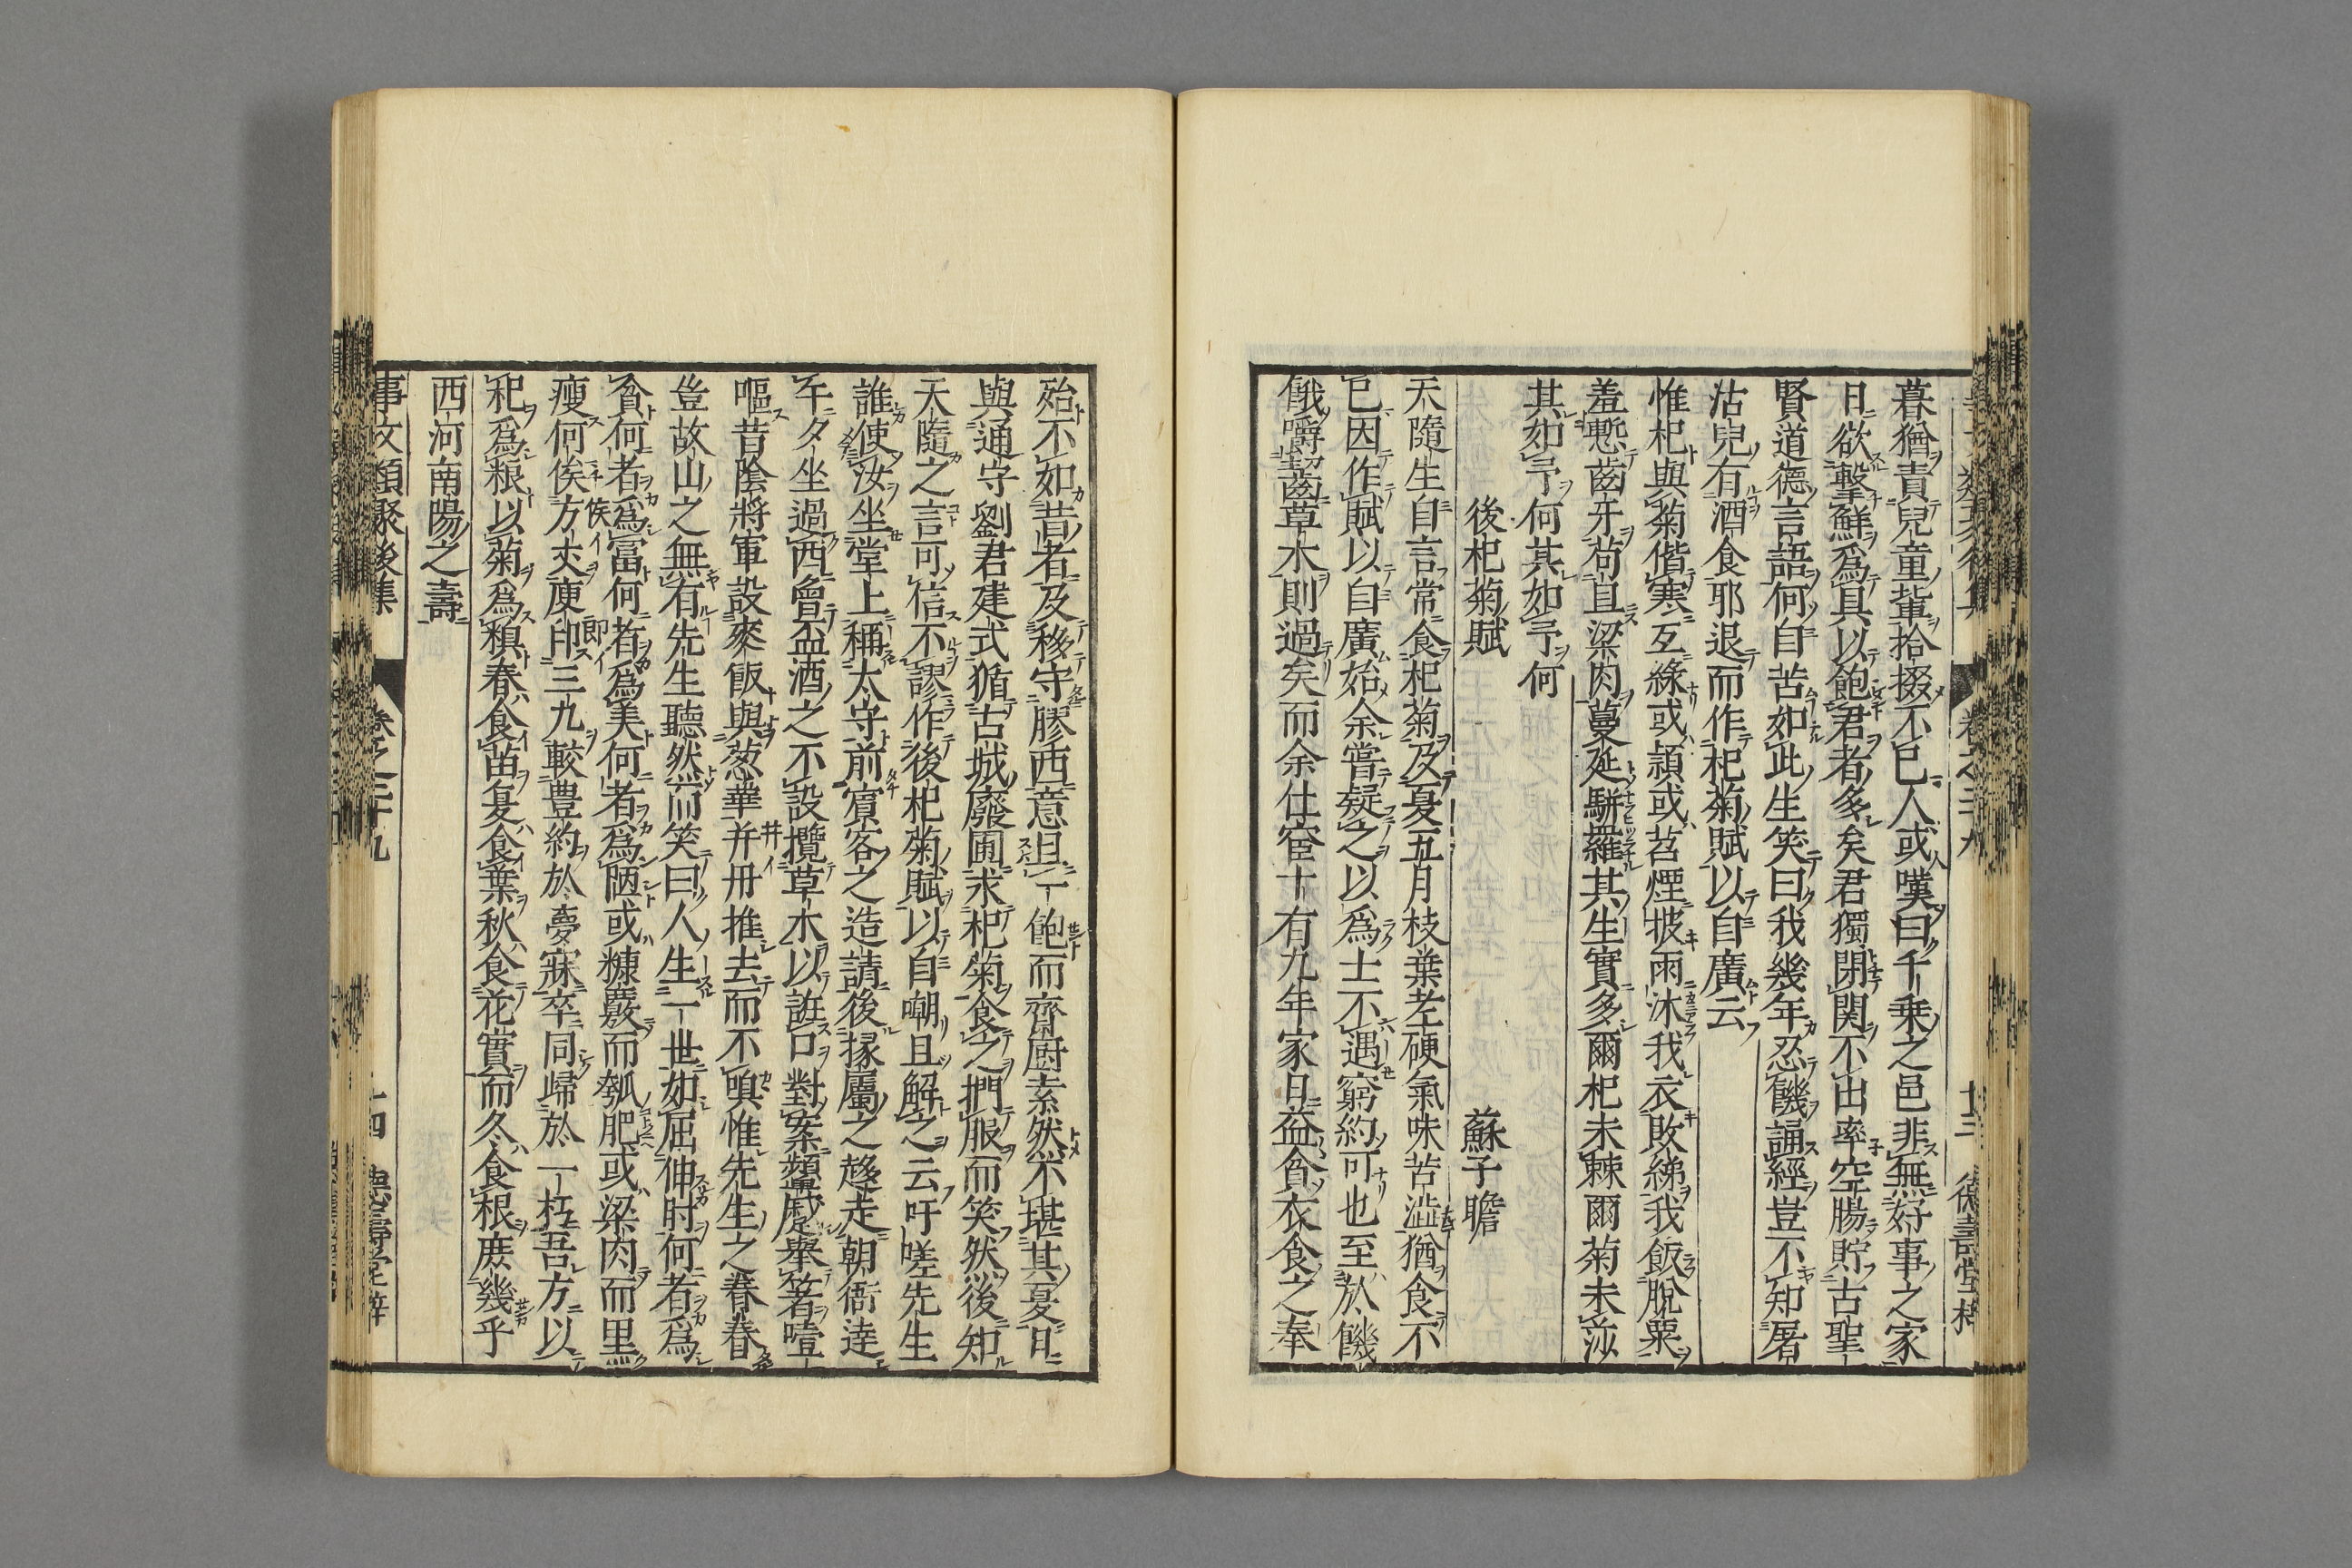 暮猶責兒童輩拾掇不已人或嘆曰千乗之邑非無好事之家
日欲擊鮮爲具以飽君者多矣君獨閉関不出率空腸貯古聖
賢道德言語何自苦如此生笑曰我幾年忍饑誦經豈不知屠
沽兒有酒食耶退而作杞菊賦以自廣云
惟杞與菊偕寒互綠或潁或苕煙披雨沐我衣敗綈我飯脫粟
羞慙齒牙苟且梁肉蔓延駢羅其生實多爾杞未棘爾菊未莎
其如予何其如予何
後杞菊賦 蘇子瞻
天隨生自言常食杞菊及夏五月枝葉老硬氣味苦澁猶食不
已因作賦以自廣始余嘗疑之以爲士不遇窮約可也至於饑
餓嚼齧草木則過矣而余仕宦十有九年家日益貧衣食之奉
殆不如昔者及移守膠西意且一飽而齋厨索然不堪其憂日
與通守劉君建式循古城廢圃求杞菊食之捫服而笑然後知
天隨之言可信不謬作後杞菊賦以自嘲且解之云吁嗟先生
誰使汝坐堂上稱太守前賓客之造請後掾屬之趍走朝衙達
午夕坐過西曾盃酒之不設攬草木以誑口對案顰蹙舉箸噎
嘔昔陰將軍設麥飯與葱葉井丹推去而不嗅惟先生之眷眷
豈故山之無有先生聽然而笑曰人生一世如屈伸肘何者爲
貧何者爲富何者爲美何者爲陋或糠覈而瓠肥或梁肉而黑
瘦何侯方丈庾郎三九較豊約於夢寐卒同歸於一朽吾方以
杞爲粮以菊爲糗春食苗夏食葉秋食花實而冬食根庶幾乎
西河南陽之壽
事文類聚後集 卷之二十九 十四 德壽堂梓